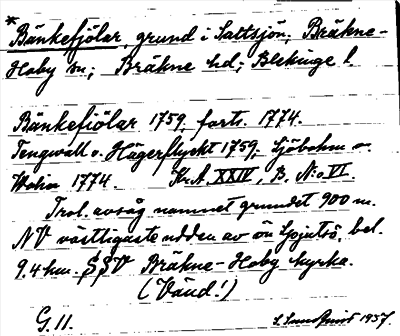 * Bänkefjölar, grund i Saltsjön, Bräkne-
Hoby sn; Bräkne hd; Blekinge l.
Bänkefiölar 1759, forts. 1774.
Tengwall o. Hägerflyckt 1759, Sjöbohm o.
1774. Kr.A. XXIV, B. N:o VI.
Trol. avsåg namnet grundet 900 m.
NV västligaste udden av ön bel.
9.4 km. SSV Bräkne-Hoby kyrka.
(Vänd!)
G. 11. 1957.